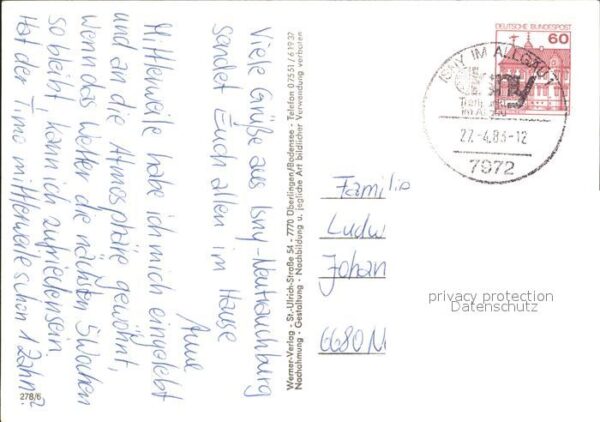 Viele Grüße aus Isny-Neutrauchburg
sendet Euch allen im Hause
Anne
Mittlerweile habe ich mich eingelebt
und an die Atmosphäre gewöhnt,
wenn das Wetter die nächsten 5 Wochen
so bleibt, kann ich zufrieden sein
Hat der Timo mittlerweile schon 1 Zahn?
278/6
Werner-Verlag - St.-Ulrich-Straße 54 - 7770 Überlingen/Bodensee - Telefon 07551/61937
Nachahmung - Gestaltung - Nachbildung u. jegliche Art bildlicher Verwendung verboten
DEUTSCHE BUNDESPOST
60
ISNY IM ALLGÄU 1
Isny
27.-4.83-12
7972
Familie
Ludw
Johan
6680 N
privacy protection
Datenschutz